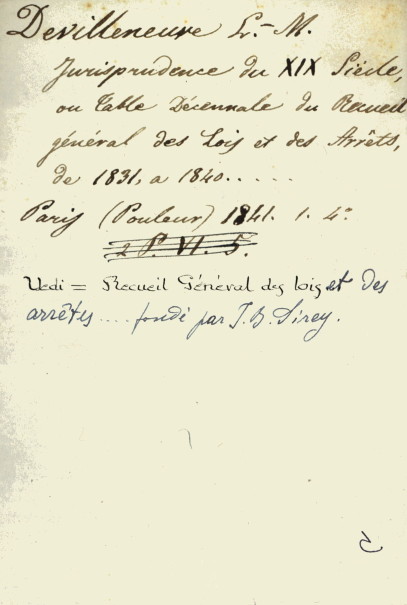 Devilleneuve L.-M.
Jurisprudence du XIX Siécle,
ou Table Décennale du Recueil
général des Lois et des Arrêts,
de 1831, a 1840.....
Paris (Pouleur) 1841. 1. 4°
2 P. VI. 5.
Vedi = Recueil Général des lois et des
arrêtes .... fondé par J. B. Sirey.